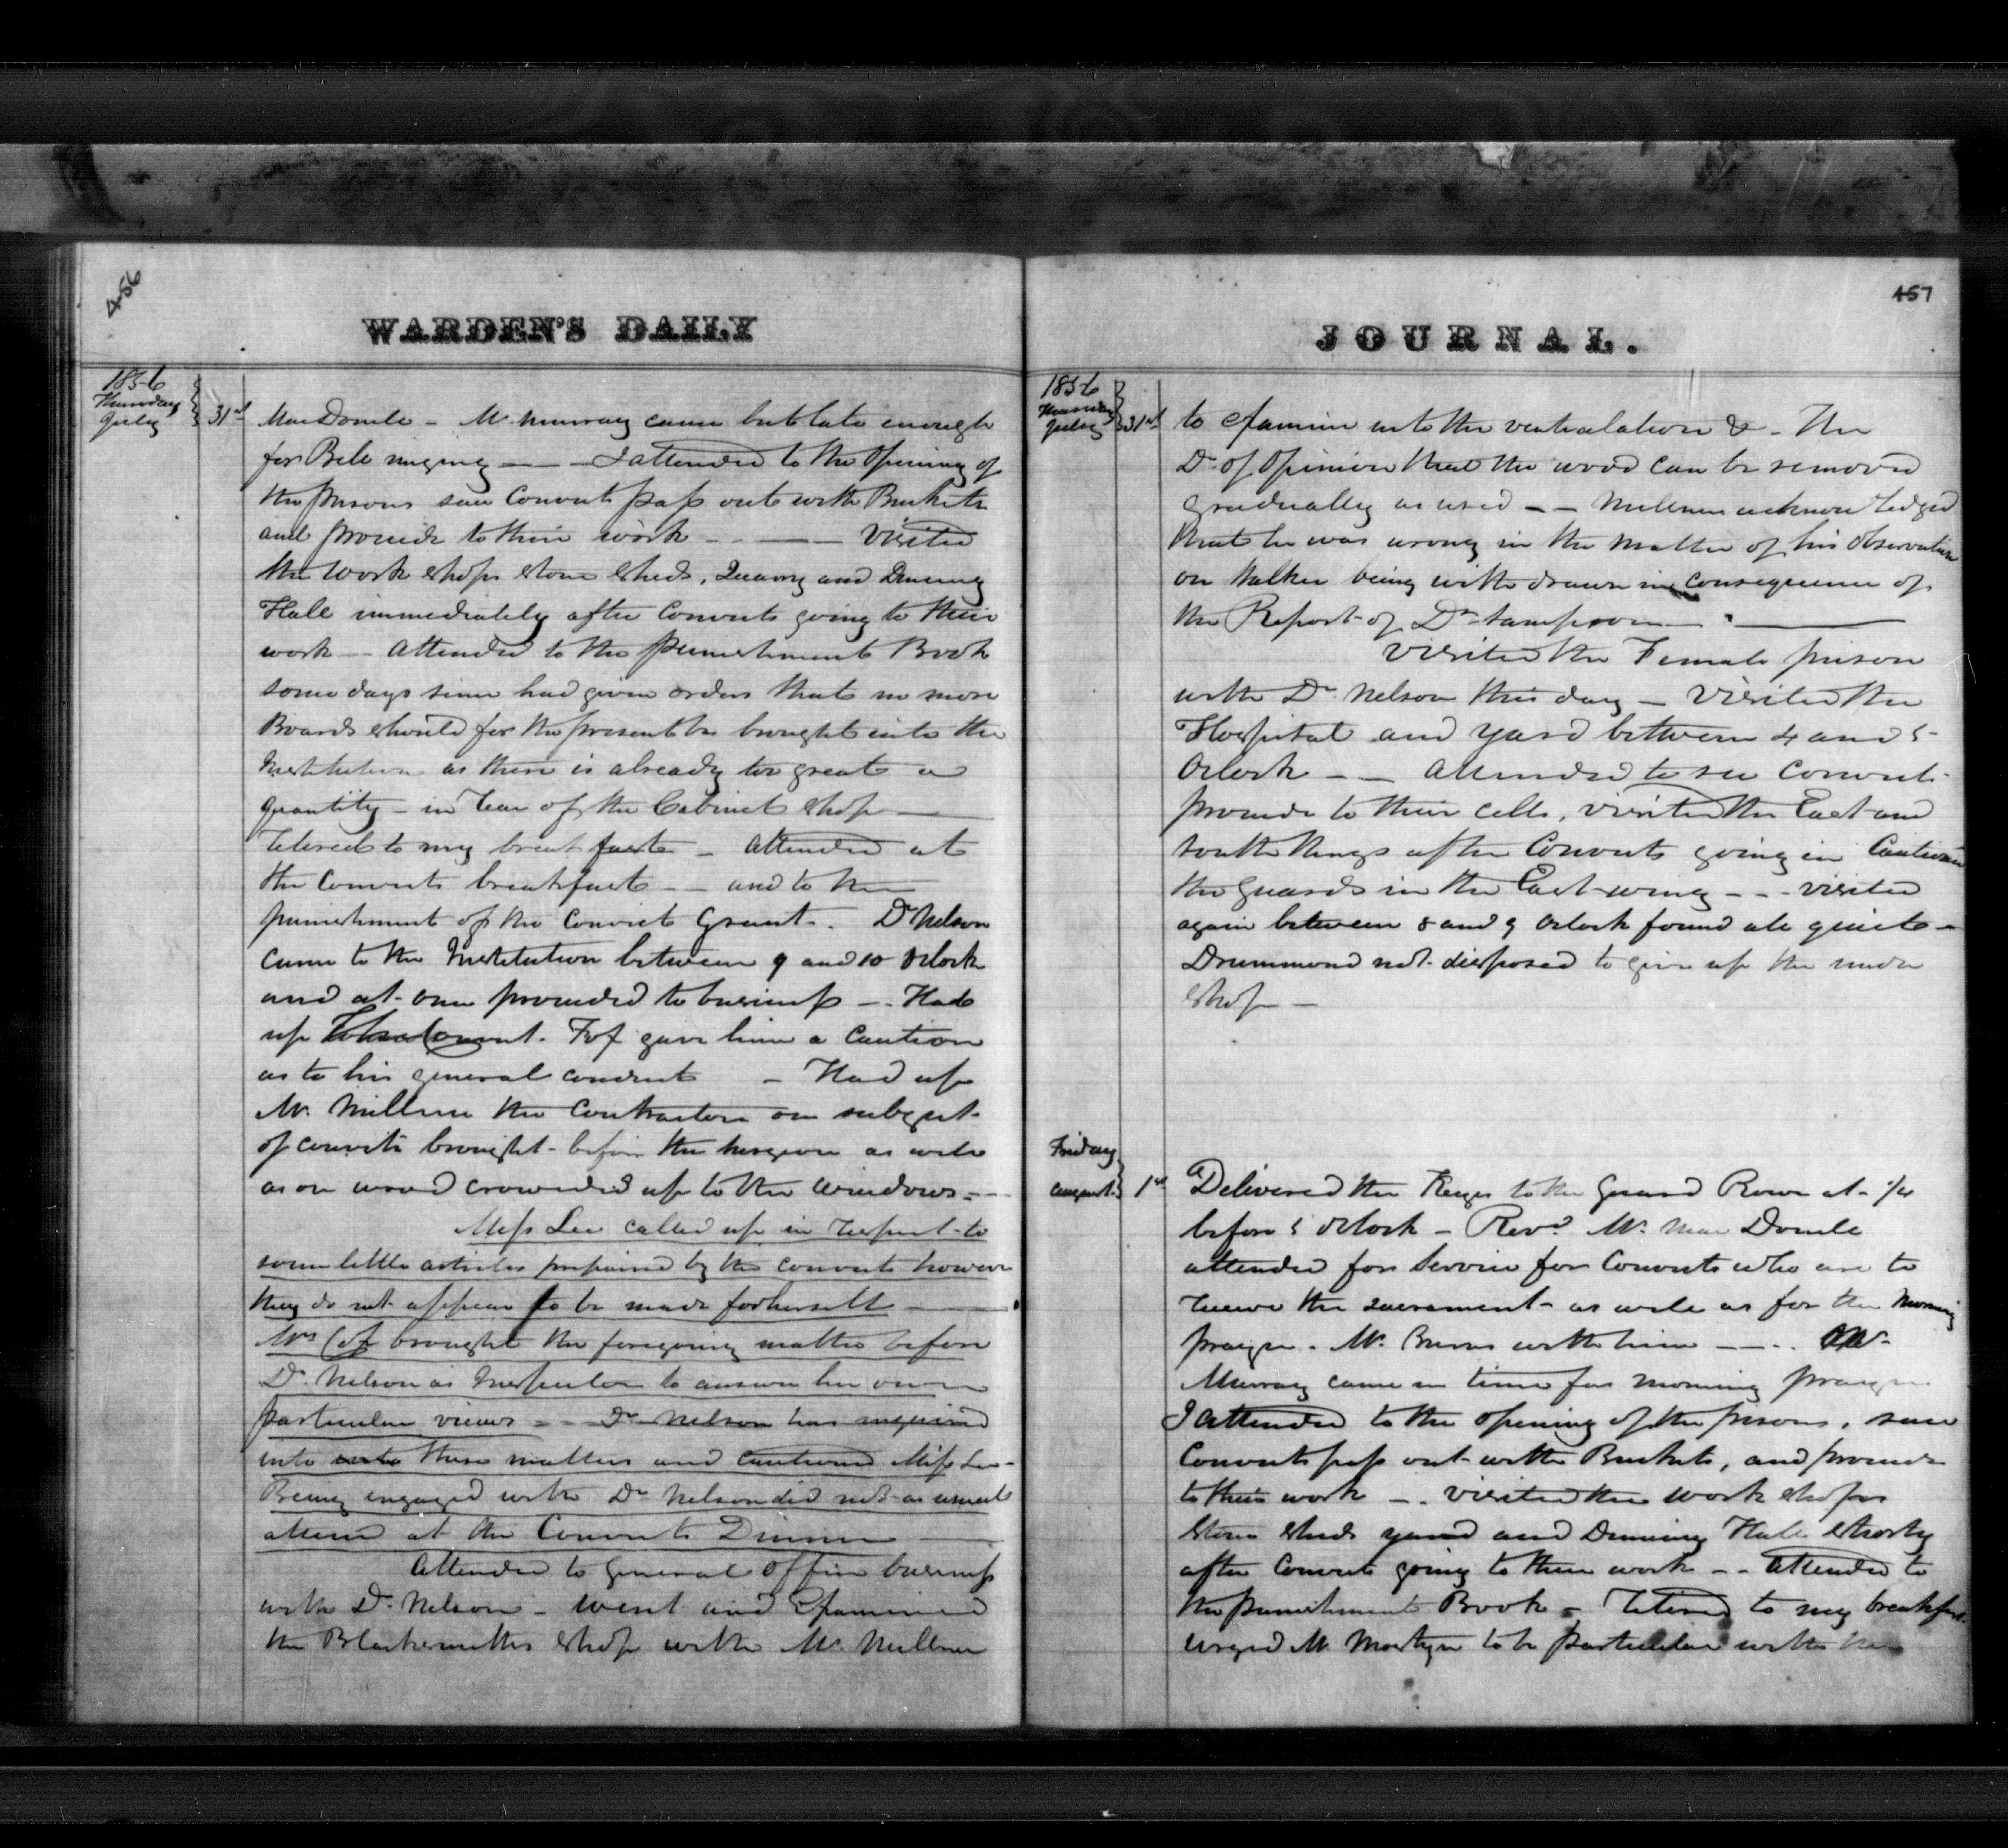 456
WARDEN'S DAILY
1856
Thursday
July
31st
MacDonele - Mr Murray came but late enough
for Bell ringing - - - I attended to the opening of
the prisons saw Convicts pass out with Buckets
and proceede to their work - - - Visited
the Work shops stone sheds, Quarry and Dinning
Hall immediately after Convicts going to their
work - attended to the punishment Book
some days since had given orders that no more
Boards should for the present be brought into the
Institution as there is already too great a
quantity - in rear of the Cabinet shop -
retired to my breakfast - attended at
the Convicts breakfast - - and to the
punishment of the Convict Grant - Dr Nelson
came to the Institution between 9 and 10 Oclock
and at once proceeded to business - Had
up Convict. Fox gave him a Caution
as to his general conduct - Had up
Mr. Millner the Contractor on subject
of convicts brought before the surgeon as well
as on wood crowded up to the windows - -
Miss Lee called up in respect to
some little articles prepaired by the convicts however
they do not appear to be made for herself -
Mrs Cox brought the foregoing matter before
Dr. Nelson as Inspector to answer her own
particular views - - Dr Nelson has inquired
into into these matters and cautioned Miss Lee -
Being engaged with Dr Nelson did not as usual
attend at the Convicts Dinner
Attended to general office business
with Dr. Nelson - went and Examined
the Blacksmiths shop with Mr. Millner
457
JOURNAL.
1856
Thursday
July
31st
to examine into the ventalation &c - The
Dr of Opinion that the wood can be removed
gradually as used - - Millner acknowledged
that he was wrong in the matter of his observation
on Walker being with drawn in consequence of
the Report of Dr Sampson - -
Visited the Female prison
with Dr. Nelson this day - Visited the
Hospital and Yard between 4 and 5
Oclock - - Attended to see Convicts
proceede to their cells, visited the East and
South Wings after Convicts going in Cautioned
the guards in the East wing - - - visited
again between 8 and 9 Oclock found all quiet -
Drummond not disposed to give up the
shop -
Friday
August
1st
Delivered the Keys to the Guard Rowe at 1/4
before 5 Oclock - Revd. Mr. MacDonele
attended for Service for Convicts who are to
receive the sacrament as well as for the morning
prayer. Mr. Burns with him - - - Mr.
Murray came in time for morning prayer
I attended to the opening of the prisons, saw
Convicts pass out with Buckets, and proceede
to their work - . visited the work shops
Stone sheds yard and Dinning Hall shortly
after Convicts going to their work - - attended to
the punishment Book - retired to my breakfast
urged Mr Mostyn to be particular with the